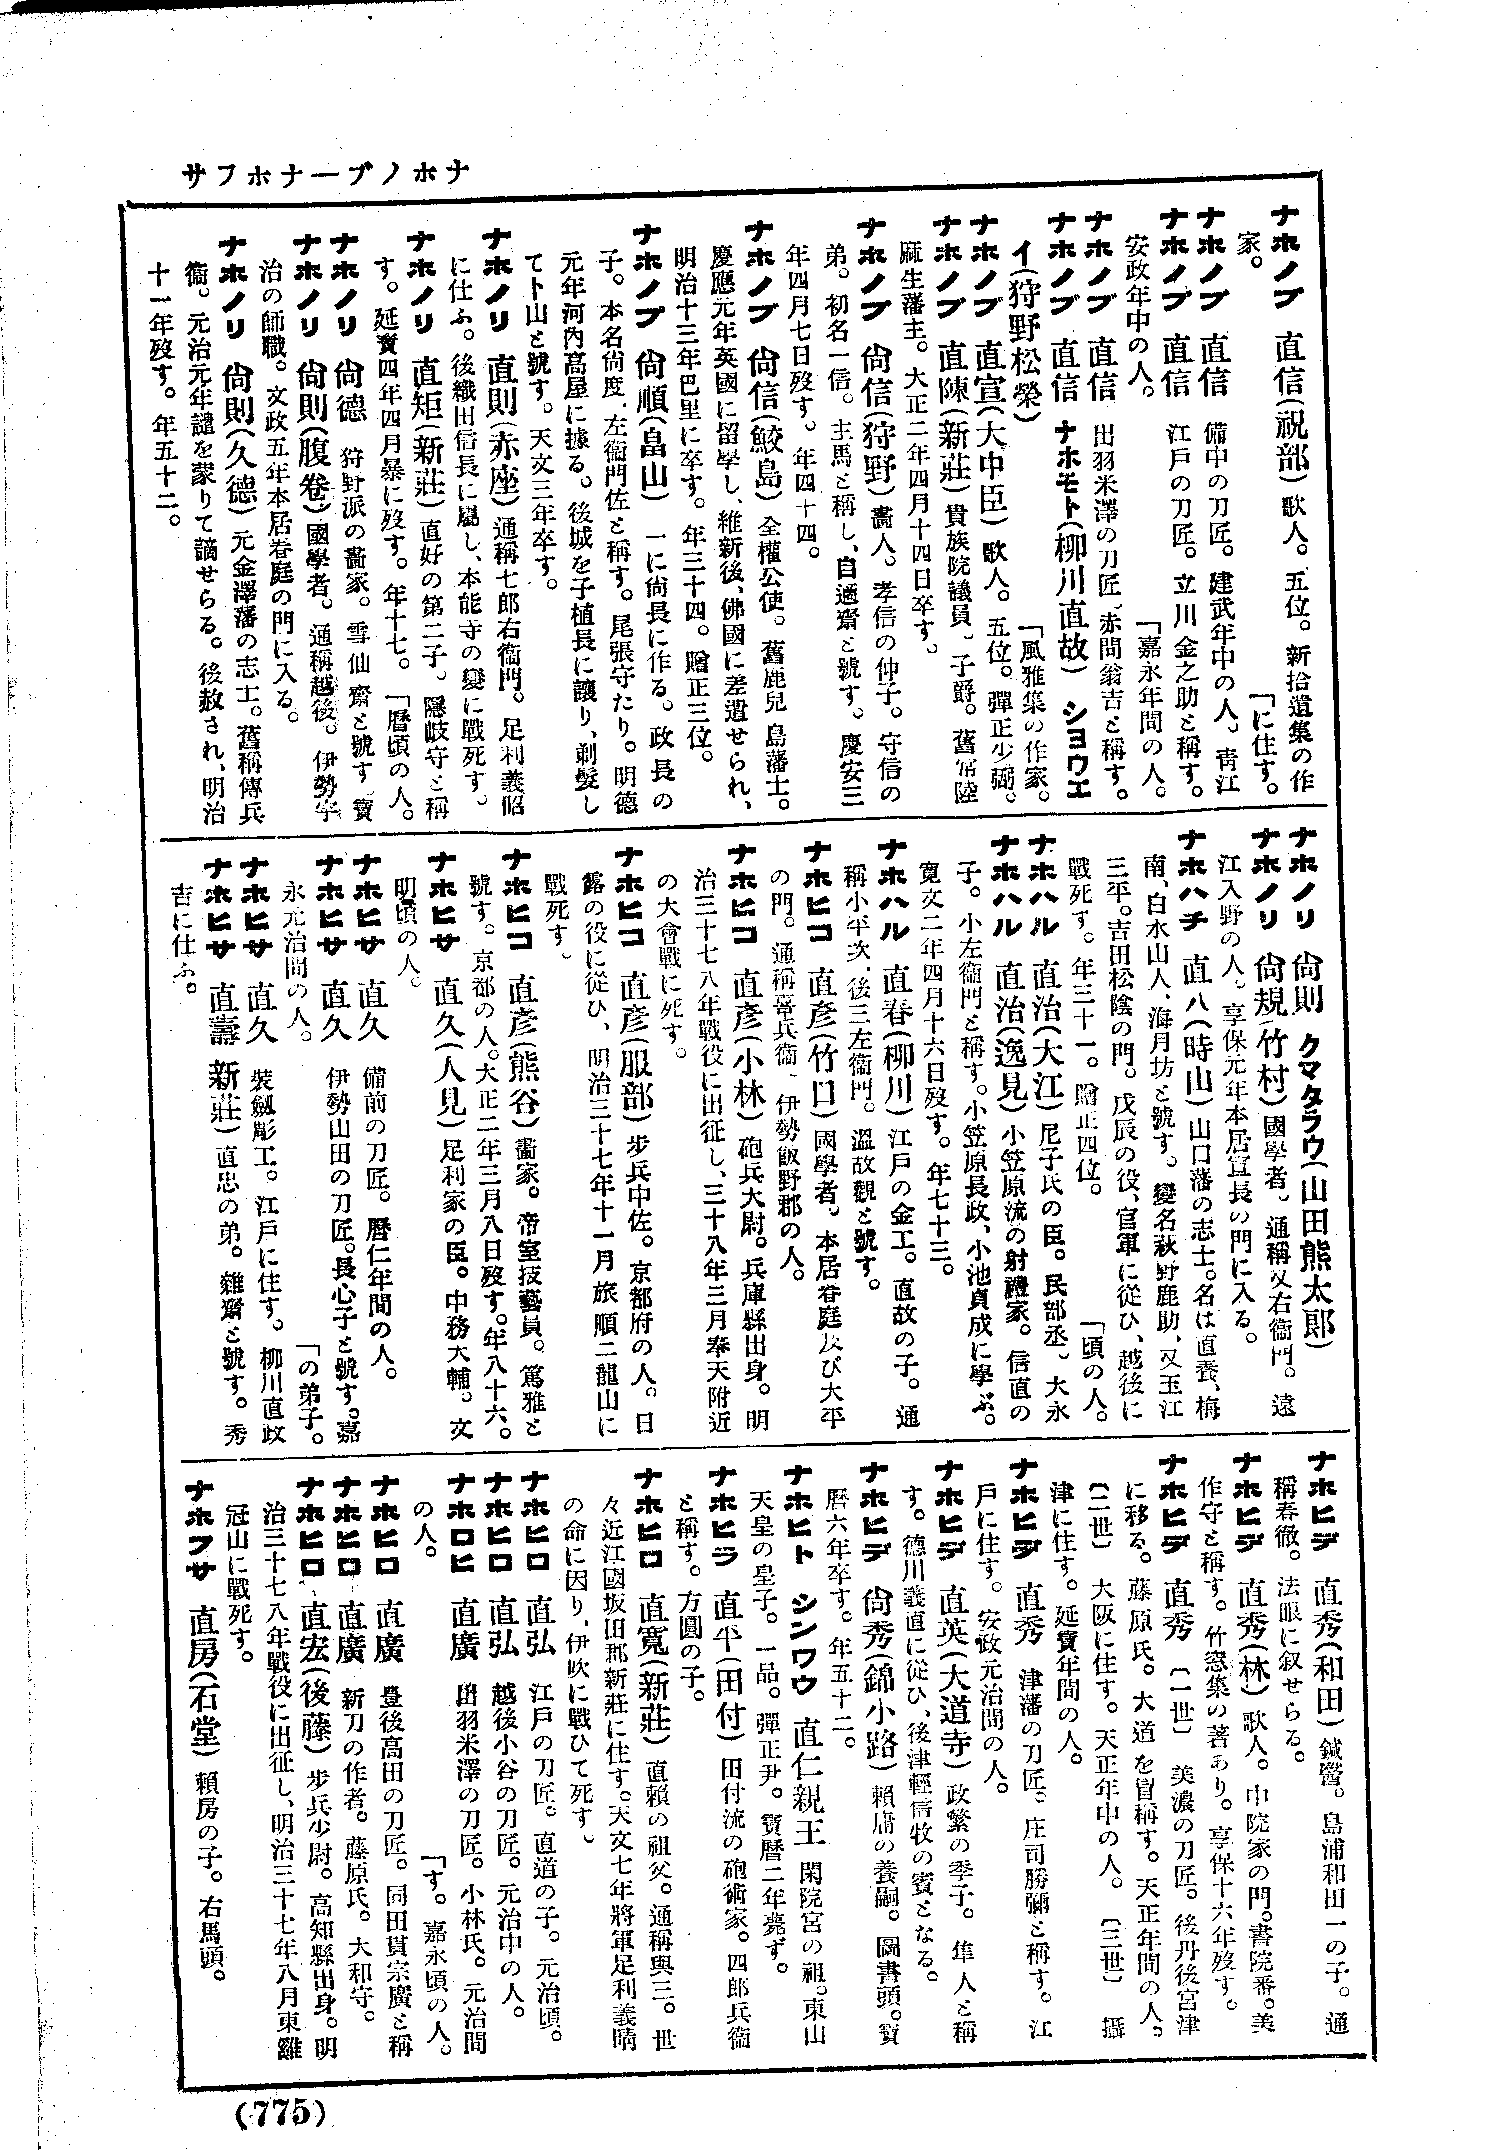 ナホノブーナホフサ
ナホノブ 直信(祝部) 歌人。五位。新拾遺集の作
家。 「に住す。
ナホノブ 直信 備中の刀匠。建武年中の人。靑江
ナホノブ 直信 江戸の刀匠。立川金之助と稱す。
安政年中の人。 「嘉永年間の人。
ナホノブ 直信 出羽米澤の刀匠、赤間翁吉と稱す。
ナホノブ 直信 ナホモト(柳川直故) シヨウエ
イ(狩野松榮) 「風雅集の作家。
ナホノブ 直宣(大中臣) 歌人。五位。彈正少弼。
ナホノブ 直陳(新莊) 貴族院議員、子爵。舊常陸
麻生藩主。大正二年四月十四日卒す。
ナホノブ 尙信(狩野) 畵人。孝信の仲子。守信の
弟。初名一信。主馬と稱し、自適齋と號す。慶安三
年四月七日歿す。年四十四。
ナホノブ 尙信(鮫島) 全權公使。舊鹿兒島藩士。
慶應元年英國に留學し、維新後、佛國に差遣せられ、
明治十三年巴里に卒す。年三十四。贈正三位。
ナホノブ 尙順(畠山) 一に尙長に作る。政長の
子。本名尙度、左衞門佐と稱す。尾張守たり。明德
元年河內高屋に據る。後城を子植長に讓り、剃髮し
て卜山と號す。天文三年卒す。
ナホノリ 直則(赤座) 通稱七郎右衞門。足利義昭
に仕ふ。後織田信長に屬し、本能寺の變に戰死す。
ナホノリ 直矩(新莊) 直好の第二子。隱岐守と稱
す。延寶四年四月暴に歿す。年十七。 「曆頃の人。
ナホノリ 尙德 狩野派の畵家。雪仙齋と號す。寶
ナホノリ 尙則(腹卷) 國學者。通稱越後。伊勢宇
治の師職。文政五年本居春庭の門に入る。
ナホノリ 尙則(久德) 元金澤藩の志士。舊稱傳兵
衞。元治元年譴を蒙りて謫せらる。後赦され、明治
十一年歿す。年五十二。
ナホノリ 尙則 クマタラウ(山田熊太郎)
ナホノリ 尙規(竹村) 國學者、通稱又右衞門。遠
江入野の人。享保元年本居宣長の門に入る。
ナホハチ 直八(時山) 山口藩の志士。名は直養、梅
南、白水山人、海月坊と號す。變名萩野鹿助、又玉江
三平。吉田松陰の門。戊辰の役、官軍に從ひ、越後に
戰死す。年三十一。贈正四位。 「頃の人。
ナホハル 直治(大江) 尼子氏の臣。民部丞、大永
ナホハル 直治(逸見) 小笠原流の射禮家。信直の
子。小左衞門と稱す。小笠原長政、小池貞成に學ぶ。
寬文二年四月十六日歿す。年七十三。
ナホハル 直春(柳川) 江戸の金工。直故の子。通
稱小平次、後三左衞門。溫故觀と號す。
ナホヒコ 直彥(竹口) 國學者。本居春庭及び大平
の門。通稱喜兵衞、伊勢飯野郡の人。
ナホヒコ 直彥(小林) 砲兵大尉。兵庫縣出身。明
治三十七八年戰役に出征し、三十八年三月奉天附近
の大會戰に死す。
ナホヒコ 直彥(服部) 步兵中佐。京都府の人。日
露の役に從ひ、明治三十七年十一月旅順二龍山に
戰死す。
ナホヒコ 直彥(熊谷) 畵家。帝室技藝員。篤雅と
號す。京都の人。大正二年三月八日歿す。年八十六。
ナホヒサ 直久(人見) 足利家の臣。中務大輔。文
明頃の人。
ナホヒサ 直久 備前の刀匠。曆仁年間の人。
ナホヒサ 直久 伊勢山田の刀匠。長心子と號す。嘉
永元治間の人。 「の弟子。
ナホヒサ 直久 裝劔彫工。江戸に住す。柳川直政
ナホヒサ 直壽(新莊) 直忠の弟。雜齋と號す。秀
吉に仕ふ。
ナホヒデ 直秀(和田) 鍼醫。島浦和田一の子。通
稱春徹。法眼に叙せらる。
ナホヒデ 直秀(林) 歌人。中院家の門。書院番。美
作守と稱す。竹窓集の著あり。享保十六年歿す。
ナホヒデ 直秀 〔一世〕 美濃の刀匠。後丹後宮津
に移る。藤原氏。大道を冒稱す。天正年間の人。
〔二世〕 大阪に住す。天正年中の人。 〔三世〕 攝
津に住す。延寶年間の人。
ナホヒデ 直秀 津藩の刀匠。庄司勝彌と稱す。江
戸に住す。安政元治間の人。
ナホヒデ 直英(大道寺) 政繁の季子。隼人と稱
す。德川義直に從ひ、後津輕信牧の賓となる。
ナホヒデ 尙秀(錦小路) 賴庸の養嗣。圖書頭。寶
曆六年卒す。年五十二。
ナホヒト シンワウ 直仁親王 閑院宮の祖。東山
天皇の皇子。一品。彈正尹。寶曆二年薨ず。
ナホヒラ 直平(田付) 田付流の砲術家。四郎兵衞
と稱す。方圓の子。
ナホヒロ 直寬(新莊) 直賴の祖父。通稱與三。世
々近江國坂田郡新莊に住す。天文七年將軍足利義晴
の命に因り、伊吹に戰ひて死す。
ナホヒロ 直弘 江戸の刀匠。直道の子。元治頃。
ナホヒロ 直弘 越後小谷の刀匠。元治中の人。
ナホロヒ 直廣 出羽米澤の刀匠。小林氏。元治間
の人。 「す。嘉永頃の人。
ナホヒロ 直廣 豊後高田の刀匠。同田貫宗廣と稱
ナホヒロ 直廣 新刀の作者。藤原氏。大和守。
ナホヒロ 直宏(後藤) 步兵少尉。高知縣出身。明
治三十七八年戰役に出征し、明治三十七年八月東雞
冠山に戰死す。
ナホフサ 直房(石堂) 賴房の子。右馬頭。
(775)